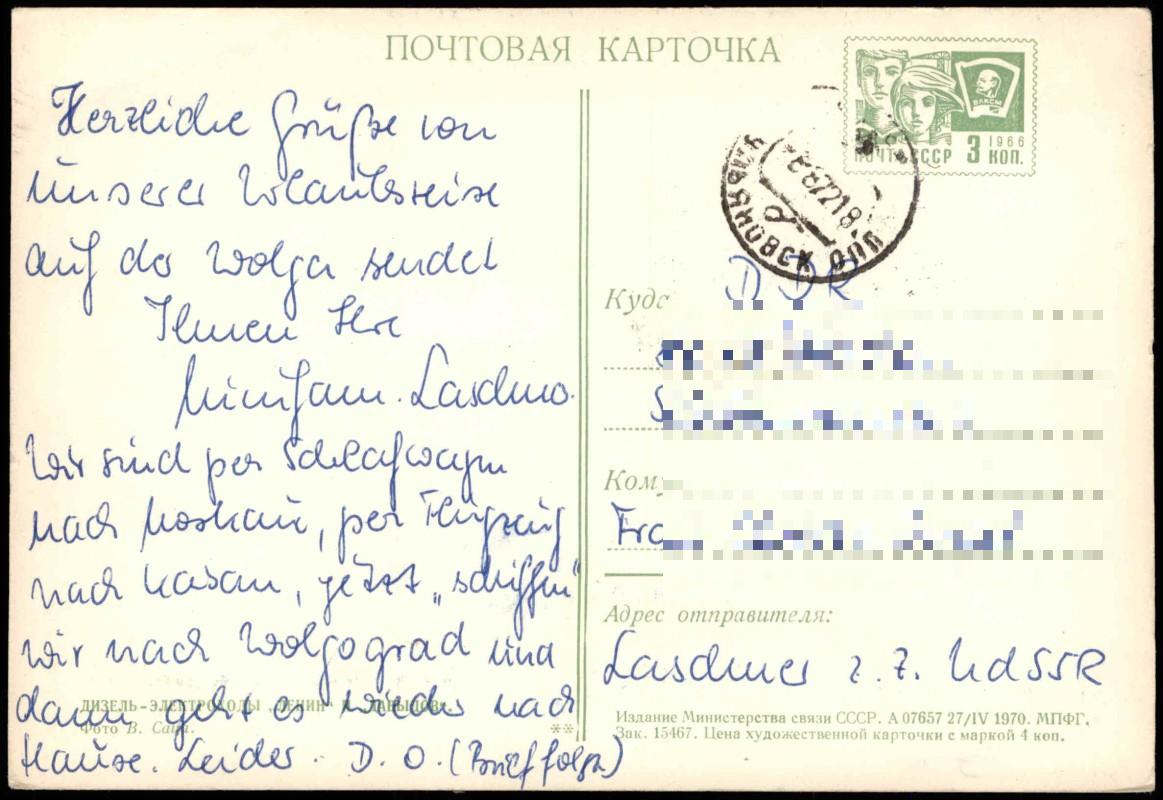 ПОЧТОВАЯ КАРТОЧКА
Herzliche Grüße von
unserer Urlaubsreise
auf der Wolga sendet
Ihnen Ihre
Wir sind per Schlafwagen
nach Moskau, per Flugzeug
nach Kasan, jetzt „schiffen"
wir nach Wolgograd und
dann geht es wieder nach
Hause. Leider. D. O. (Brief folgt)
ДИЗЕЛЬ-ЭЛЕКТРОХОДЫ „ЛЕНИН" И
Фото В.
**
ВЛКСМ
1966
ПОЧТА СССР 3 КОП.
УЛЬЯНОВСК
DDR
Куда
Кому
Адрес отправителя:
z. Z. UdSSR
Издание Министерства связи СССР. А 07657 27/IV 1970. МПФГ.
Зак. 15467. Цена художественной карточки с маркой 4 коп.